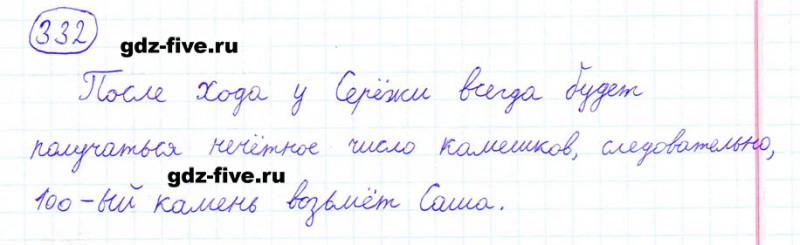 332
gdz-five.ru
После хода у Серёжи всегда будет
получаться нечётное число камешков, следовательно,
gdz-five.ru
100-ый камень возьмёт Саша.